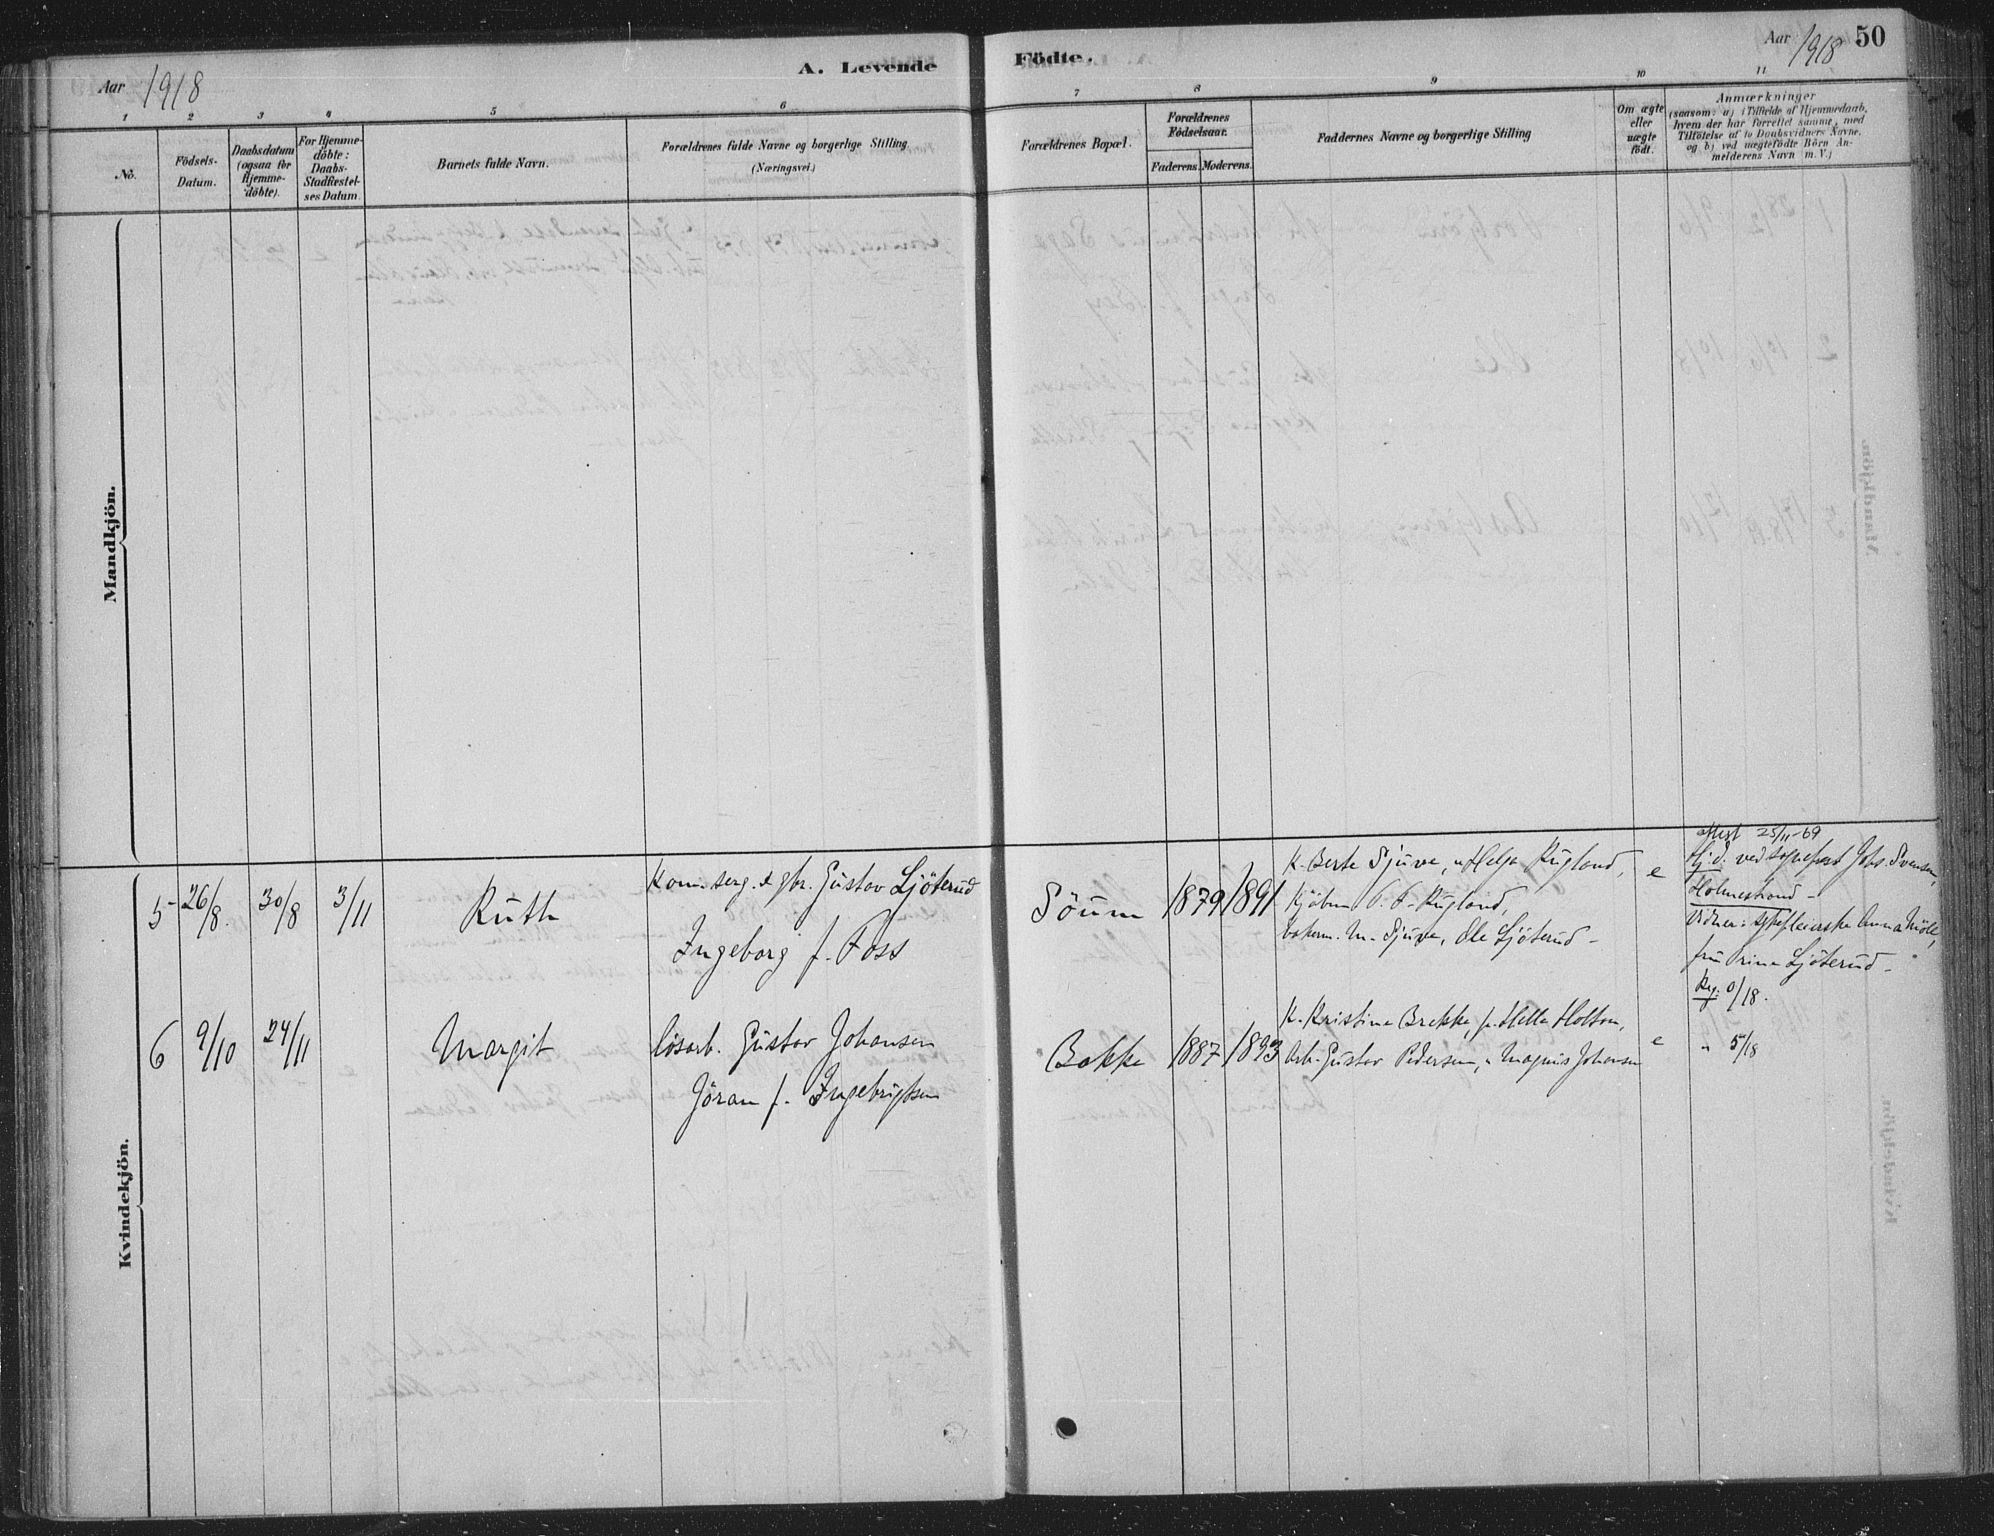 Aar 1918
A. Levende
Fødte.
Aar 1918 50
1 2 3 4 5 6 7 8 9 10 11
No.
Födsels-
Datum.
Daabsdatum
(ogsaa for
Hjemme-
döbte).
For Hjemme-
döbte:
Daabs-
Stadfæstel-
ses Datum.
Barnets fulde Navn.
Forældrenes fulde Navne og borgerlige Stilling
(Næringsvei.)
Forældrenes Bopæl.
Forældrenes
Födselsaar.
Faderens. Moderens.
Faddernes Navne og borgerlige Stilling
Om ægte
eller
uægte
født.
Anmærkninger
(saasom: a) i Tilfælde af Hjemmedaab,
hvem der har forrettet samme, med
Tilföielse af to Daabsvidners Navne,
og b) ved uægtefödte Börn An-
melderens Navn m. V.)
Mandkjön.
Kvindekjön.
5 26/8. 30/8 3/11 Ruth
Kom. serg. & gbr. Gustav Ljöterud
Ingeborg f. Foss
Söum 1879 1891
K. Berte Djuve, " Helga Rugland,
Kjöbm. Rugland,
M. Djuve, Ole Ljöterud -
e
attest 25/11-69
Hj. d. ved sognepræst Johs. Svensen,
Holmestrand -
Vidner: sykepleierske Anna
fru Ljöterud -
Reg. 0/18.
6 9/10 24/11 Margit
lösarb. Gustav Johansen
Jöran f. Ingebrigtsen
Bakke 1887 1893
K. Kristine Brekke, p. Hella Holtan,
Arb. Gustav Pedersen, " Magnus Johansen
e
" 5/18